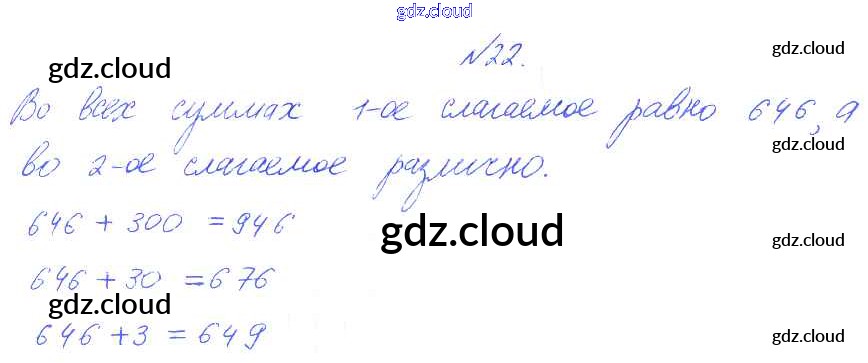 gdz.cloud
№22.
gdz.cloud
gdz.cloud
Во всех суммах 1-ое слагаемое равно 646, а
gdz.cloud
во 2-ое слагаемое различно.
646 + 300 = 946
gdz.cloud
gdz.cloud
646 + 30 = 676
gdz.cloud
646 + 3 = 649
gdz.cloud